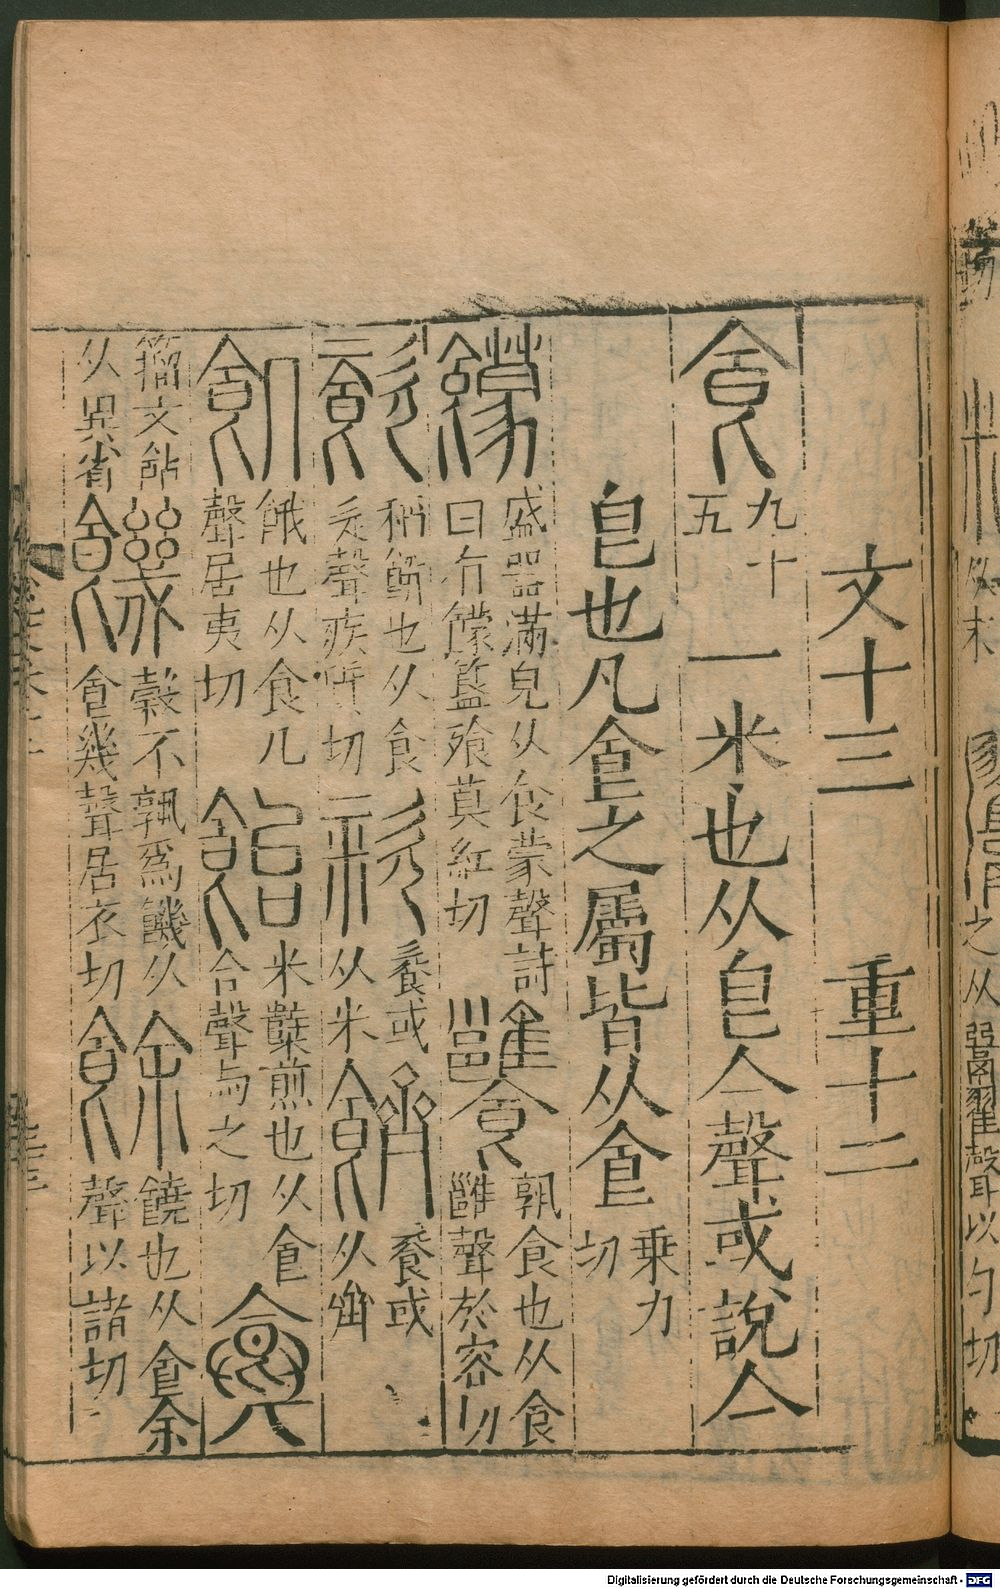 从木
之从
翟聲以勺切
文十三 重十二
食 九十五 一米也从皀亼聲或說亼
皀也凡食之屬皆从食 乗力切
饛 盛器滿皃从食蒙聲詩曰有饛簋飱莫紅切 饔 孰食也从食雝聲於容切
餈 稻餅也从食次聲疾資切 粢 餈或从米 餈或从齊
飢 餓也从食几聲居夷切 飴 米櫱煎也从食台聲与之切
籀文飴从異省 饑 穀不孰爲饑从食幾聲居衣切 餘 饒也从食余聲以諸切
Digitalisierung gefördert durch die Deutsche Forschungsgemeinschaft - DFG